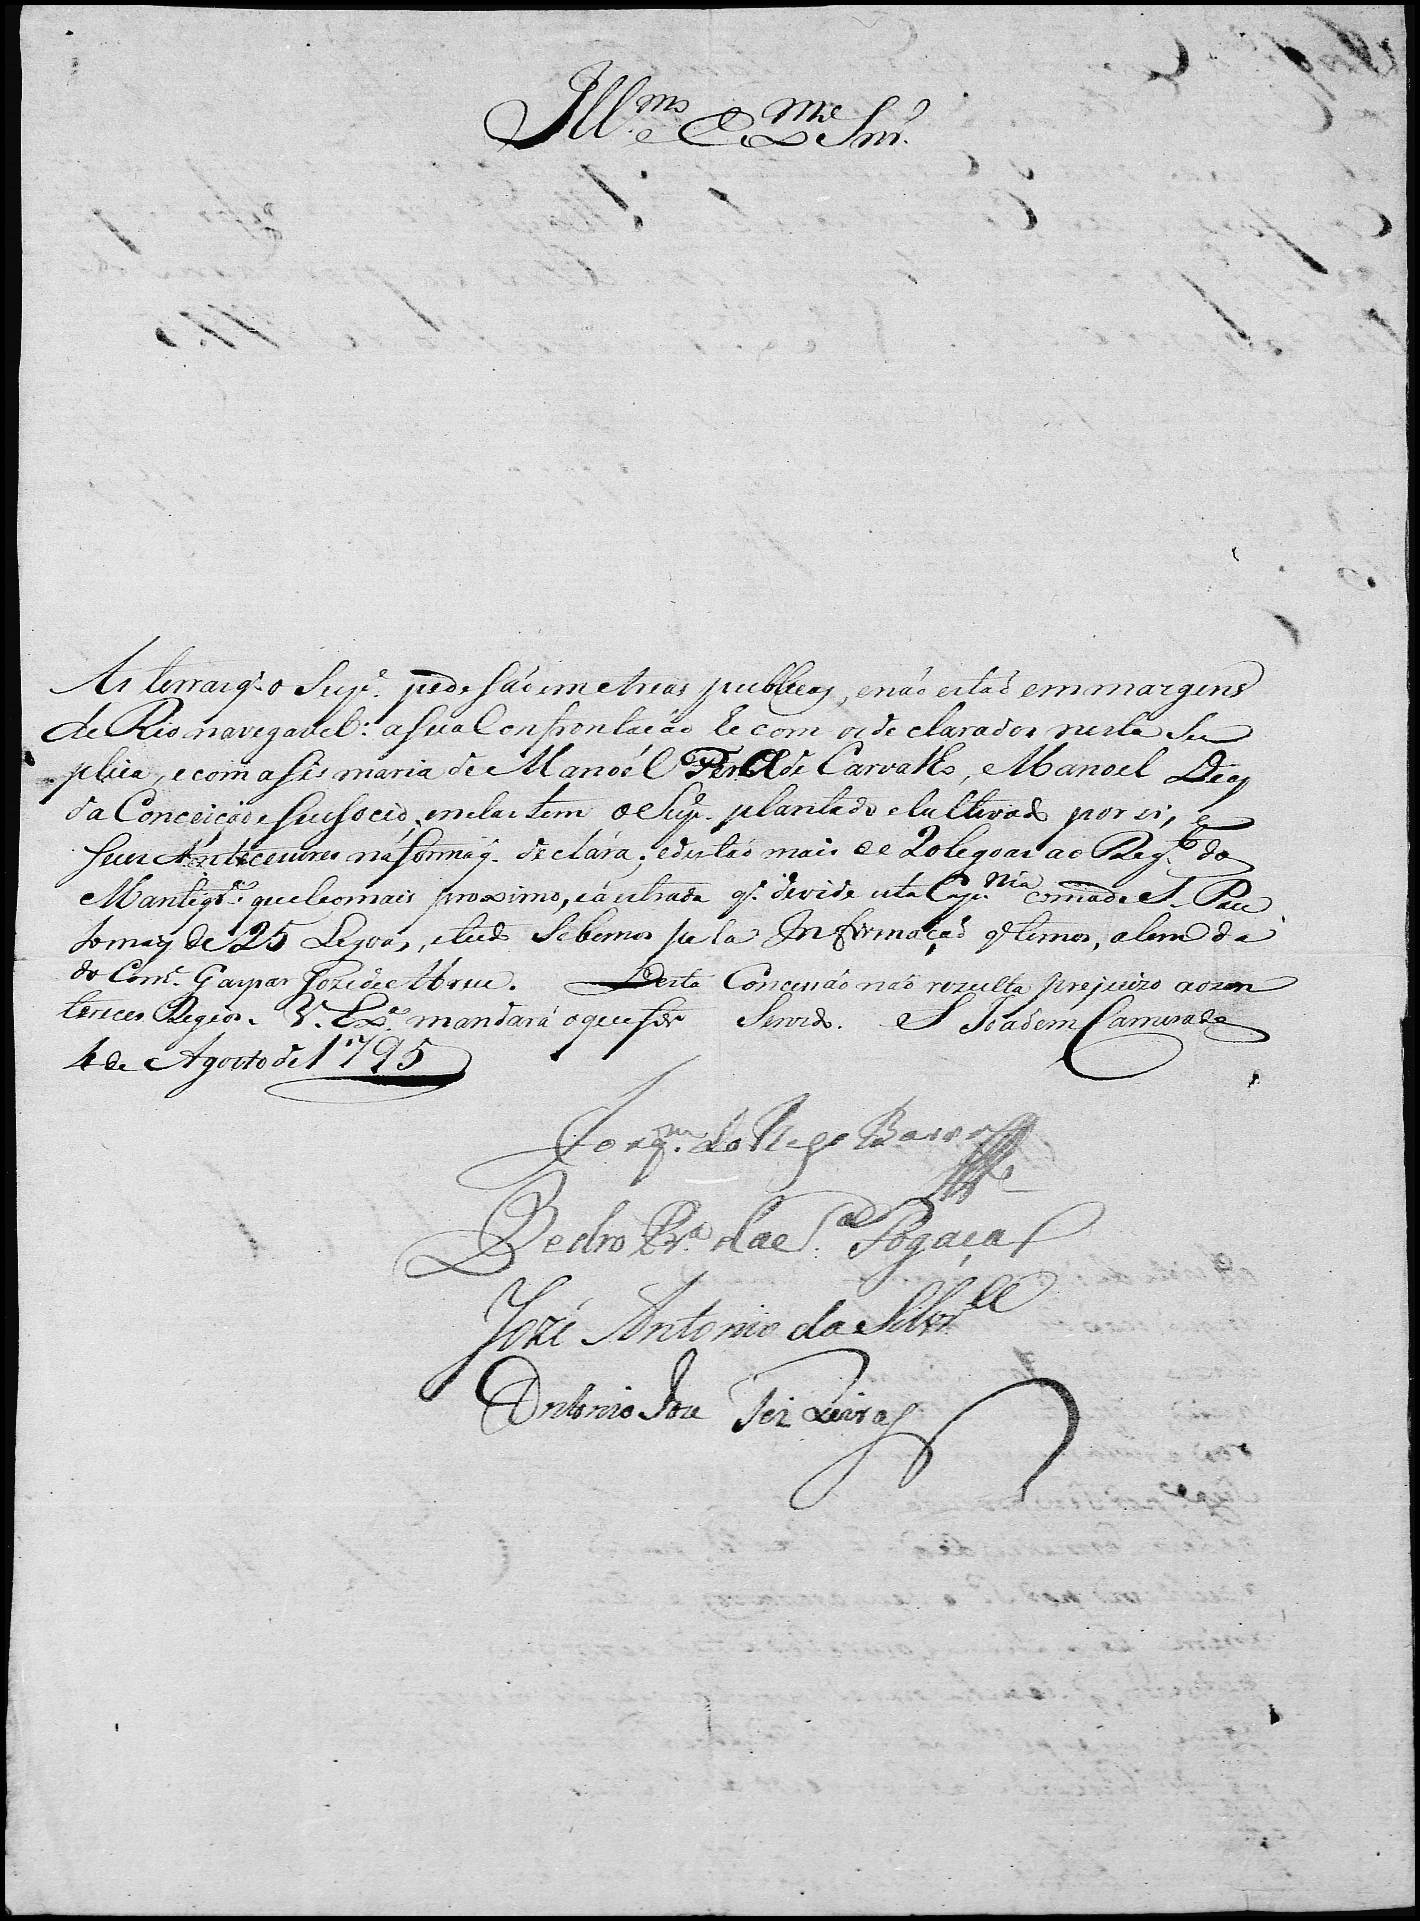 Ill.mo e Ex.mo Snr.
As terras q. o Sup.e pede são em etreas publicas, e não estão em margens
de Rio navegavel: a sua Confrontação he com os declarados nesta Su
plica, e com a sismaria de Manoel Fer.a de Carvalho, e Manoel Dias
da Conceição e seu socio, e nelas tem o Sup.e plantado e cultivado por si, e
seus Antecesores na forma q. declára; e distão mais de 20 legoas ao Reg.to da
Mantiqr.a que he o mais proximo, e á estrada q. devide esta Cap.nia com a de S. Pau
lo mais de 25 Legoas, e tudo Sabemos pela Informação q temos, alem da
do Com.e Gaspar Jozé de Abreu. Desta Concesão não rezulta prejuizo aos in
terices Regios. V. Ex.a mandará o que for Servido. S João em Camera de
4 de Agosto de 1795
Joaq.m do Rego Barros
Pedro Pr.a da C.a Pogaça
Jozé Antonio da Silv.a
Antonio Joze Teixeira